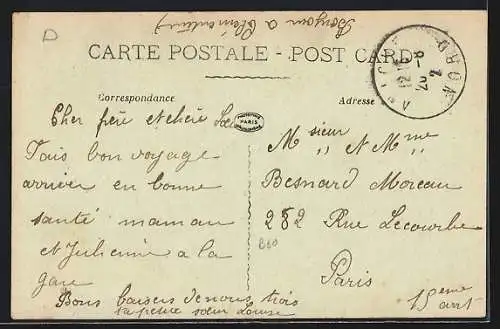 D
Bonjour a
CARTE POSTALE - POST CARD
Correspondance
Adresse
PARIS
Cher frère et chère Sœur
Fais bon voyage
arriver en bonne
santé maman
et Julienne a la
gare
Bons baisers de nous trois
ta petite sœur Louise
M sieur et M me
" "
Besnard Moreau
252 Rue Lecourbe
Paris
15 eme
arrt